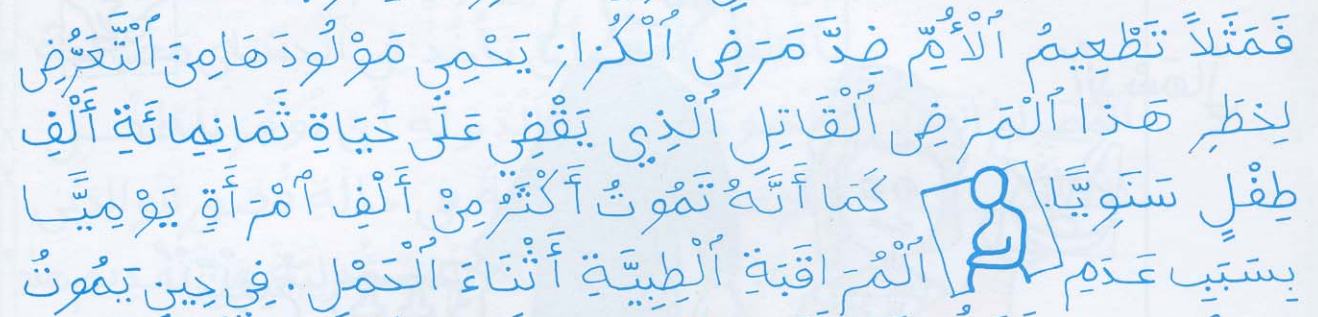 فَمَثَلاً تَطْعِيمُ ٱلْأُمِّ ضِدَّ مَرَضِ ٱلْكُزازِ يَحْمِي مَوْلُودَهَا مِنَ ٱلْتَّعَرُّضِ
لِخطَرِ هَذا ٱلْمَرَضِ ٱلْقَاتِلِ ٱلْذِي يَقْضِي عَلَى حَيَاةِ ثَمَانِيمِائَةِ أَلْفِ
طِفْلٍ سَنَوِيًّا. كَمَا أَنَّهُ تَمُوتُ أَكْثَرُ مِنْ أَلْفِ ٱمْرَأَةٍ يَوْمِيًّا
بِسَبَبِ عَدَمِ ٱلْمُرَاقَبَةِ ٱلْطِبِيَّةِ أَثْنَاءَ ٱلْحَمْلِ. فِي حِينِ يَمُوتُ